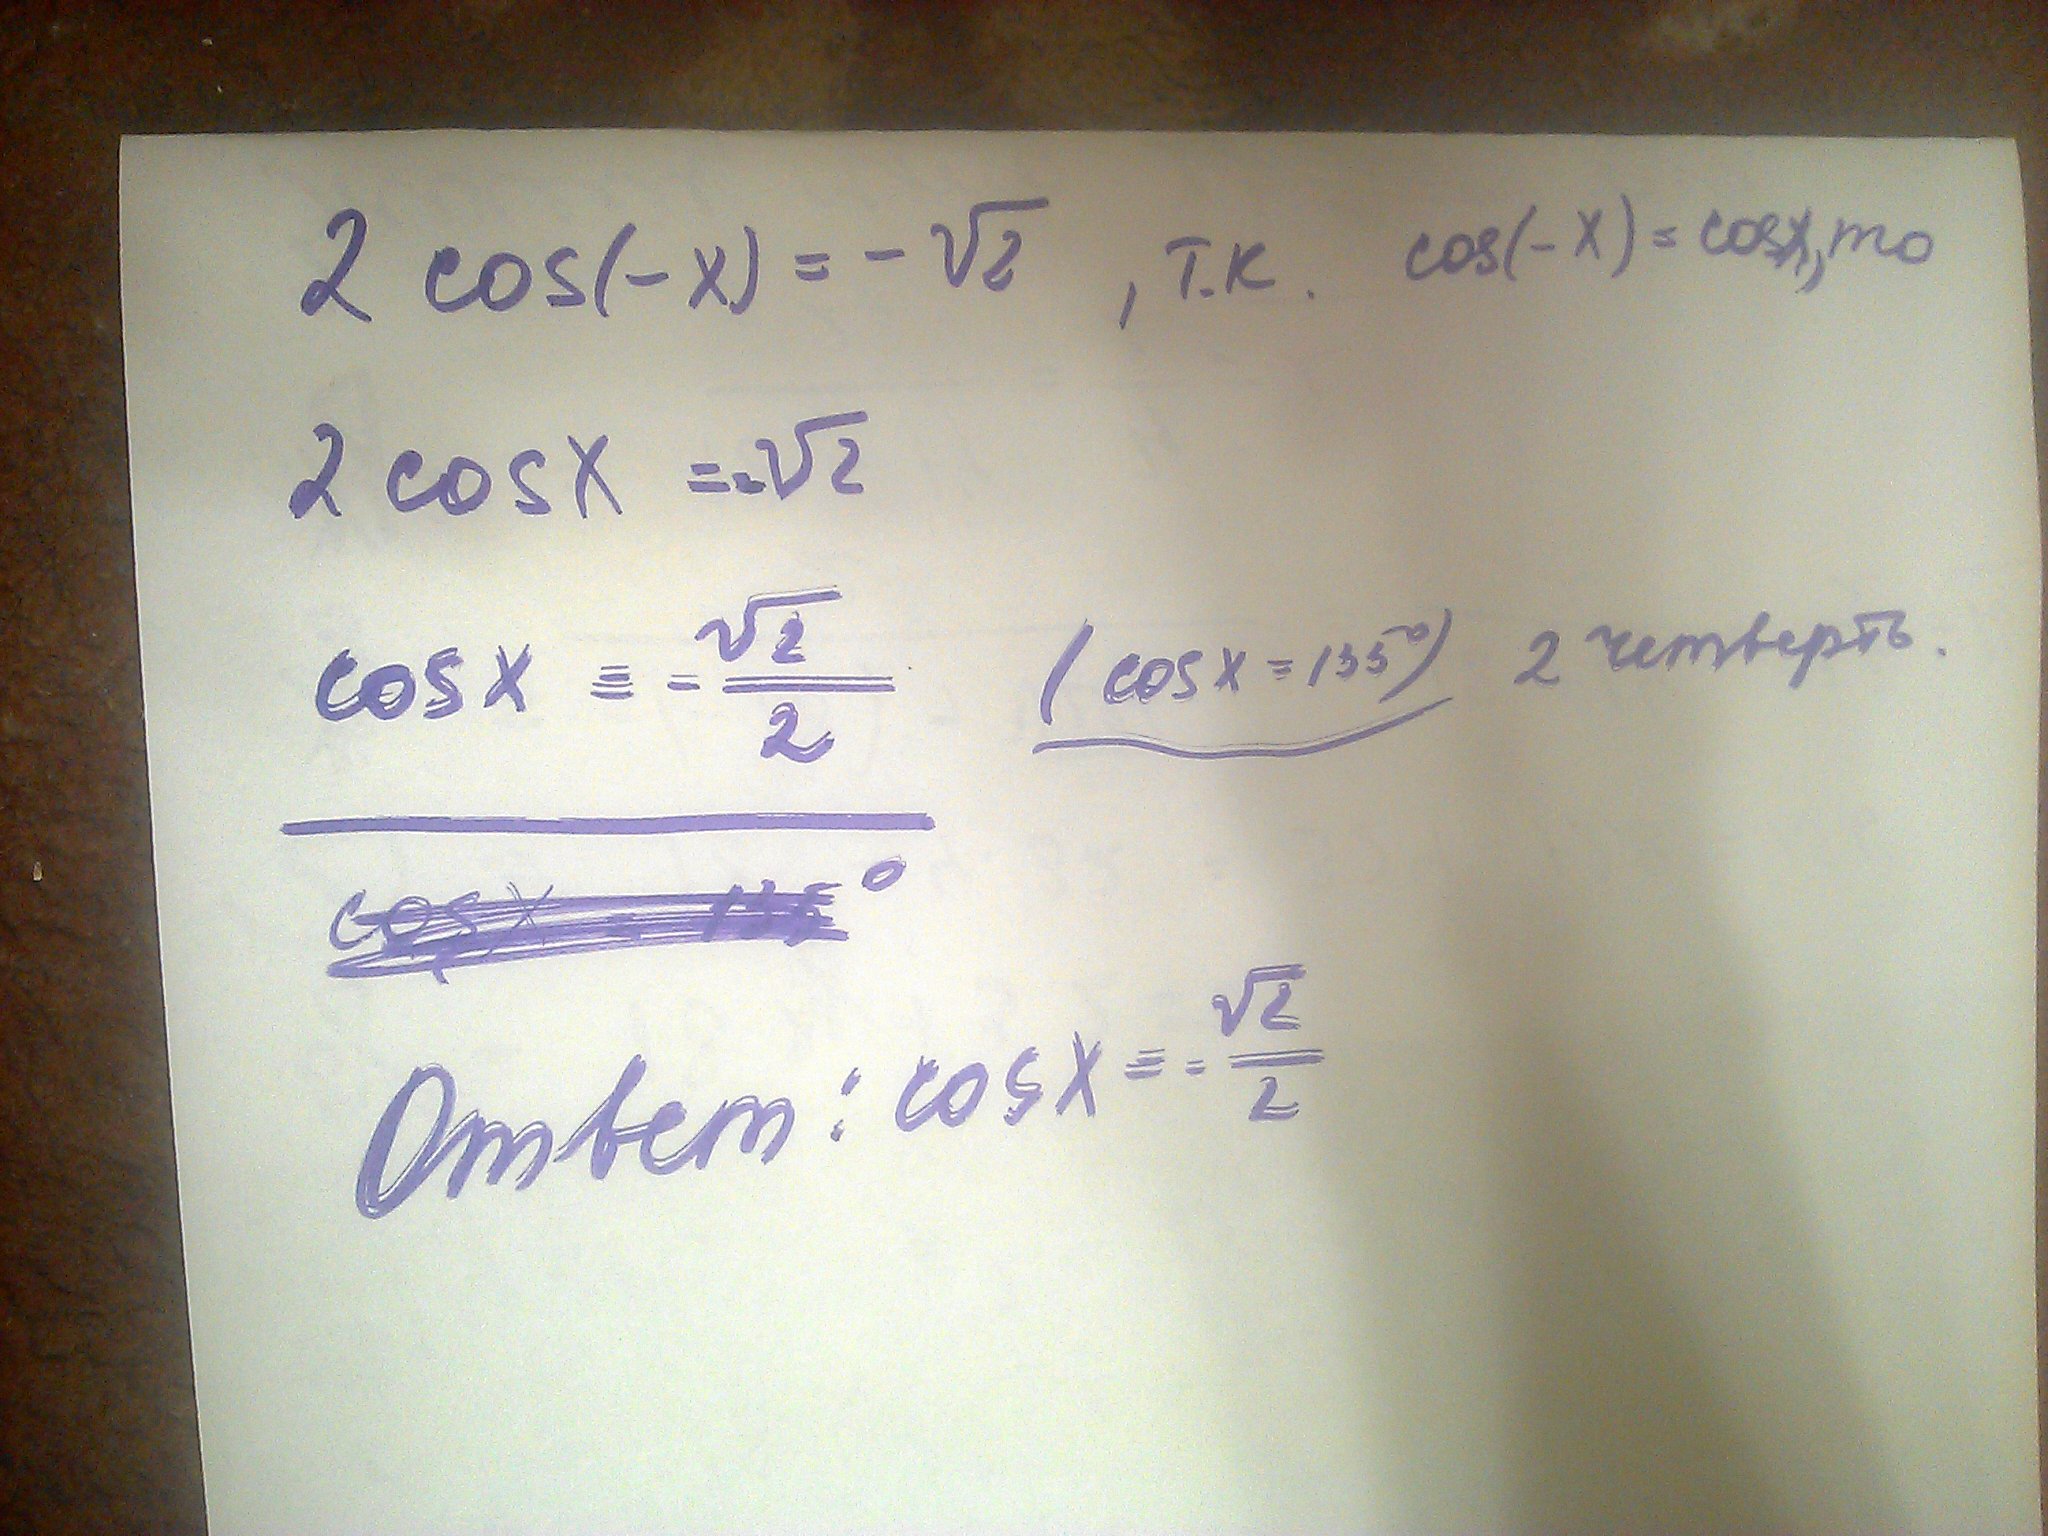 2 cos(-x) = -√2 , т.к. cos(-x) = cosx, то
2 cosx = -√2
cosx = -√2/2 (cosx = 135°) 2 четверть.
cosx = 135°
Ответ: cosx = -√2/2